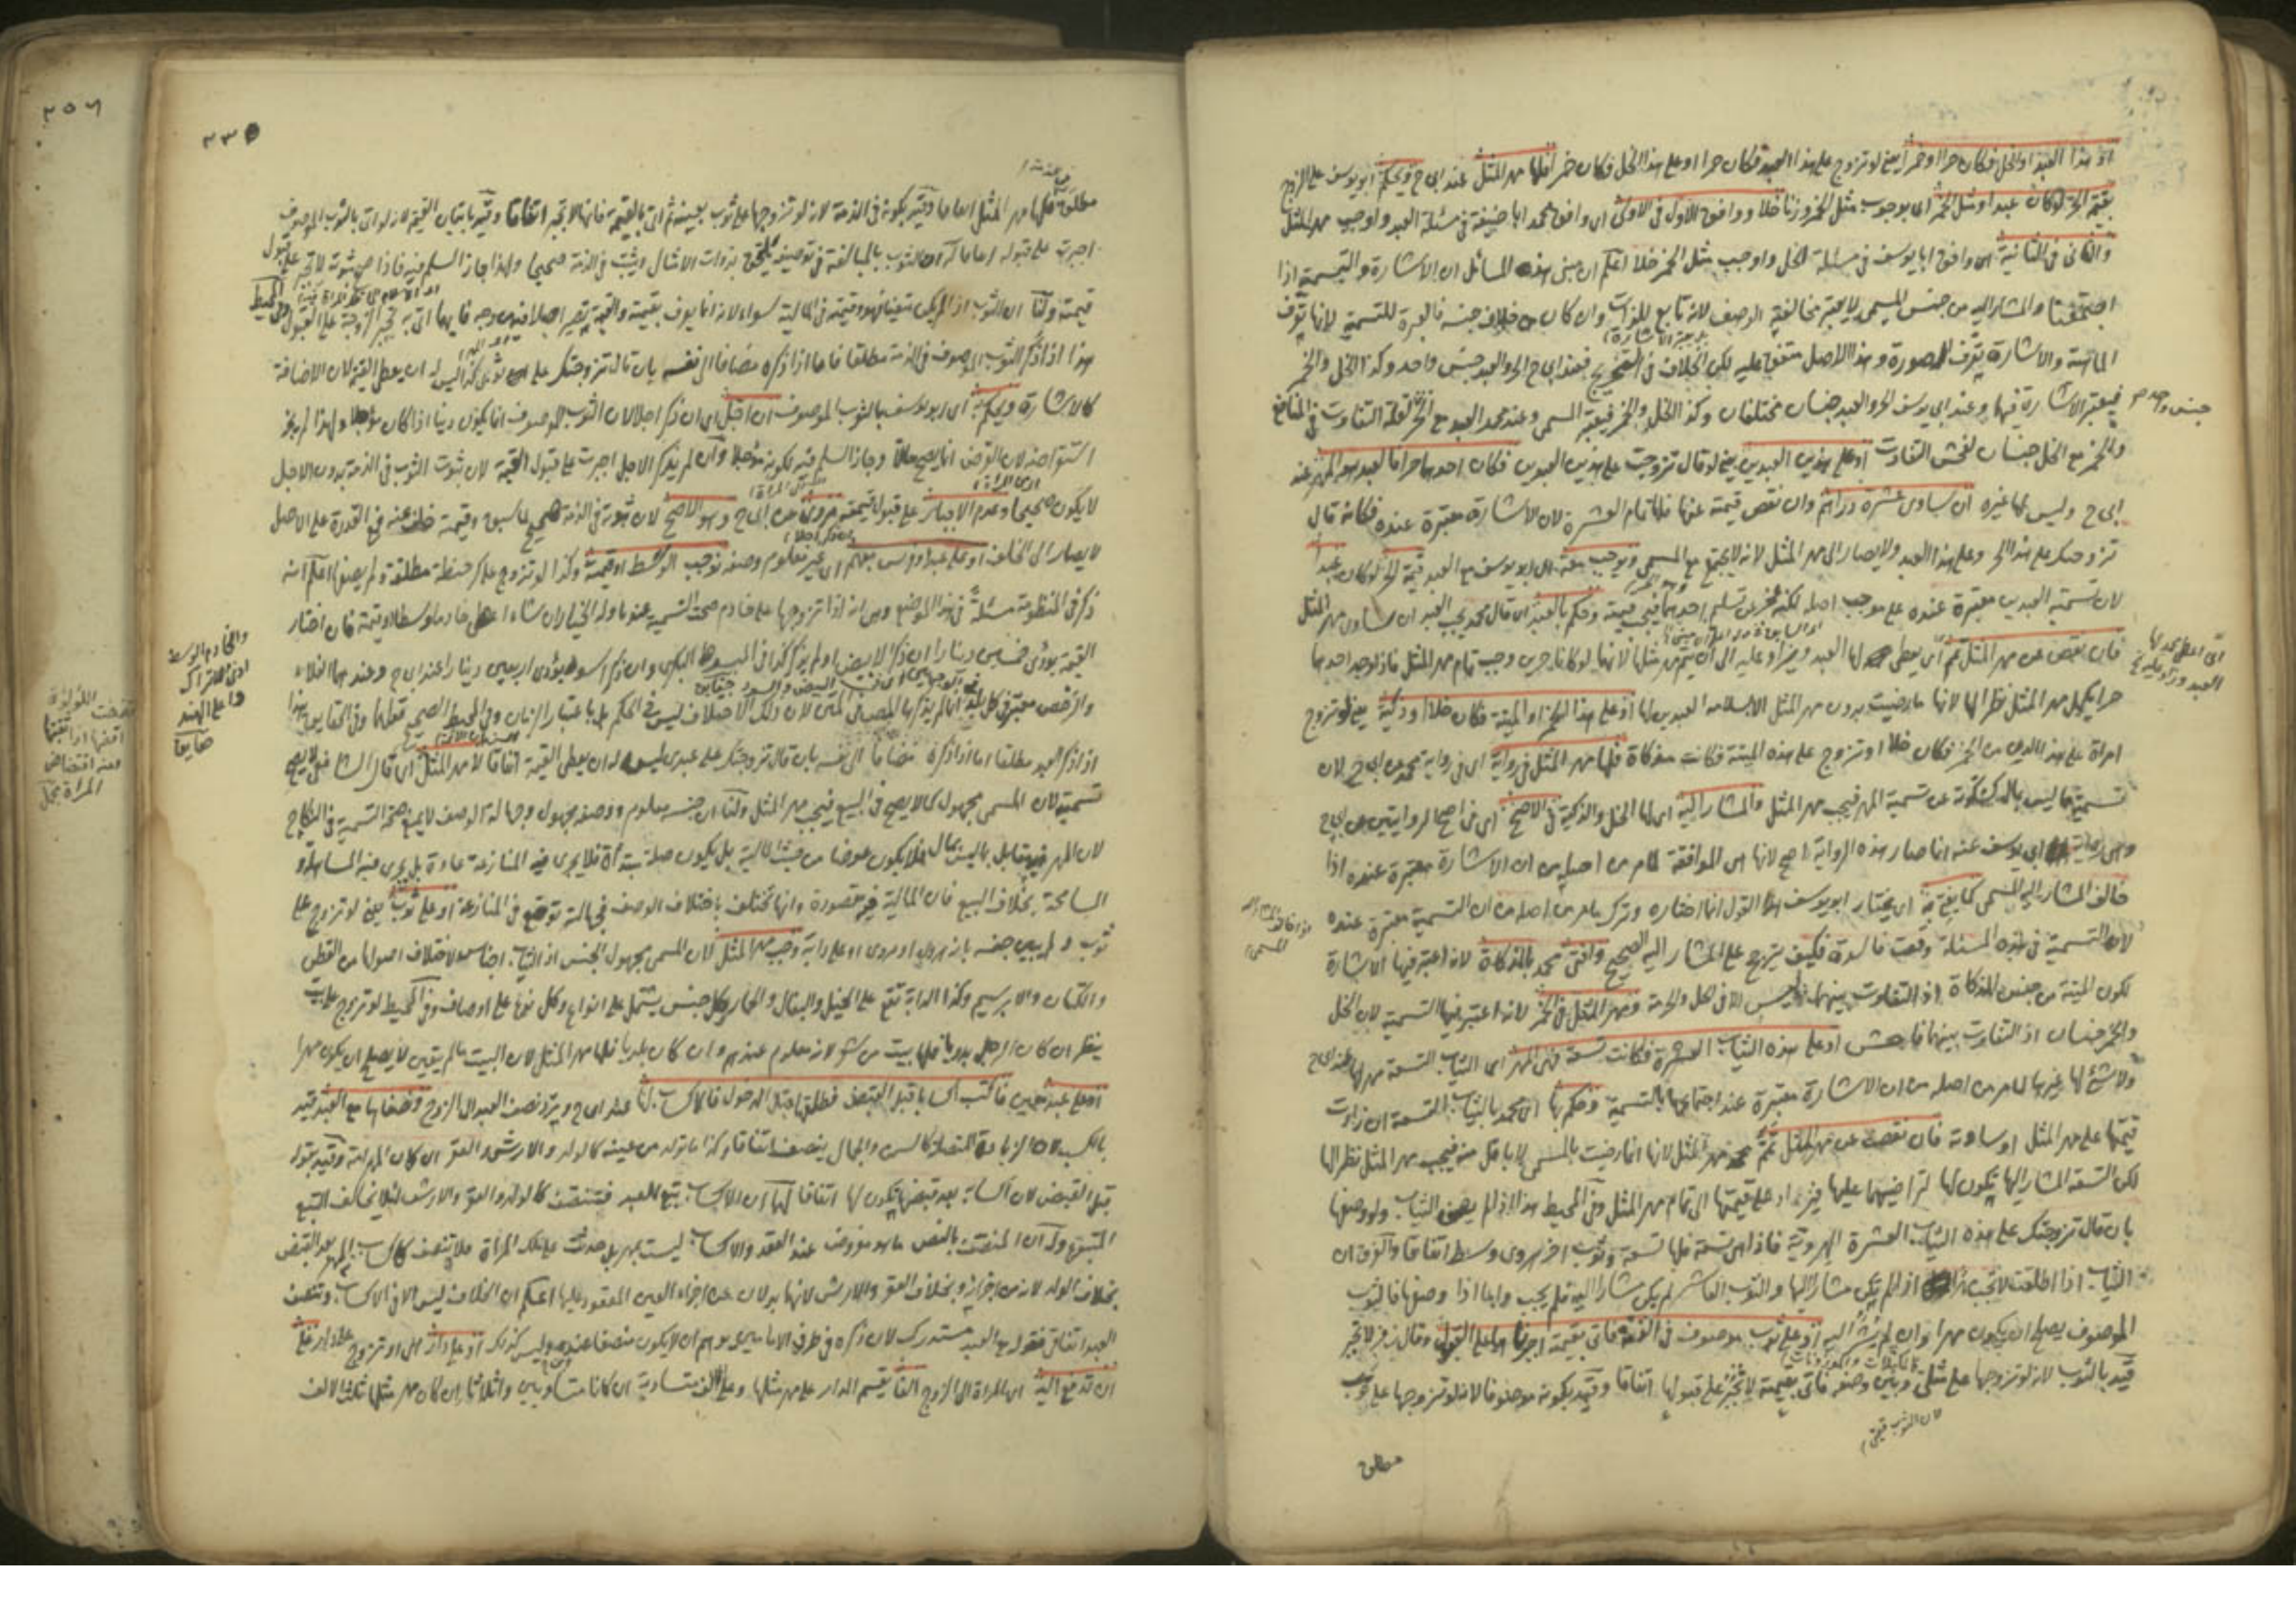 او هذا العبد او الخل فكان حرا او خمرا يعني لو تزوج على هذا العبد فكان حرا او على هذا الخل فكان خمرا فلها مهر المثل عند ابي ح ويحكم ابو يوسف على الزوج
بقيمة الحر لو كان عبدا ومثل الخمر اي بوجوب مثل الخمر وزنا خلا ووافق الاول في الاولى اي وافق محمد ابا حنيفة في مسئلة العبد واوجب مهر المثل
والثاني في الثانية اي وافق ابا يوسف في مسئلة الخل واوجب مثل الخمر خلا اعلم ان مبنى هذه المسائل ان الاشارة والتسمية اذا
اجتمعتا والمشار اليه من جنس المسمى لا يعتبر مخالفة الوصف لانه تابع للذات وان كان من خلاف جنسه فالعبرة للتسمية لانها تعرف
الماهية والاشارة تعرف الصورة وهذا الاصل متفق عليه لكن الخلاف في التخريج فعند ابي ح الحر والعبد جنس واحد وكذا الخل والخمر
فيعتبر الاشارة فيها وعند ابي يوسف الحر والعبد جنسان مختلفان وكذا الخل والخمر فيعتبر المسمى وعند محمد العبد مع الحر لقلة التفاوت في المنافع
جنس واحد
والخمر مع الخل جنسان لفحش التفاوت او على هذين العبدين يعني لو قال تزوجت على هذين العبدين فكان احدهما حرا فالعبد هو المهر عند
ابي ح وليس لها غيره ان ساوى عشرة دراهم وان نقص قيمته عنها فلها تمام العشرة لان الاشارة معتبرة عنده فكانه قال
تزوجتك على هذا الحر وعلى هذا العبد ولا يصار الى مهر المثل لانه لا يجتمع مع المسمى ويوجب معه اي ابو يوسف مع العبد قيمة الحر لو كان عبدا
لان تسمية العبدين معتبرة عنده على موجب اصله لكنه عجز عن تسليم احدهما فيجب قيمته وحكم بالعبد اي قال محمد يجب العبد ان ساوى مهر المثل
فان نقص عن مهر المثل تمم اي يعطى لها العبد ويزاد عليه الى ان يتم مهر مثلها لانهما لو كانا حرين وجب تمام مهر المثل فاذا وجد احدهما
حرا يكمل مهر المثل نظرا لها لانها ما رضيت بدون مهر المثل الا بسلامة العبدين لها او على هذا الخمر او الميتة فكان خلا او ذكية يعني لو تزوج
امراة على هذا الدن من الخمر فكان خلا او تزوج على هذه الميتة فكانت مذكاة فلها مهر المثل في رواية اي في رواية محمد عن ابي ح لان
تسمية ما ليس بمال كسكوته عن تسمية المهر فيجب مهر المثل والمشار اليه اي لها الخل والذكية في الاصح اي في اصح الروايتين عن ابي ح
وهي رواية ابي يوسف عنه انما صار هذه الرواية اصح لانها هي الموافقة لما مر من اصله من ان الاشارة معتبرة عنده اذا
خالف المشار اليه المسمى كما يفتي به اي يختار ابو يوسف هذا القول انما اختاره وترك ما مر من اصله من ان التسمية معتبرة عنده
لان التسمية في هذه المسئلة وقعت فاسدة فكيف يترجح على المشار اليه الصحيح وافتى محمد بالمذكاة لانه اعتبر فيها الاشارة
لكون الميتة من جنس المذكاة اذ التفاوت بينهما ليس الا في الحل والحرمة ومهر المثل في الخمر لانه اعتبر فيها التسمية لان الخل
والخمر جنسان اذ التفاوت بينهما فاحش او على هذه الثياب العشرة فكانت تسعة فهي المهر اي الثياب التسعة مهر لها عند ابي ح
ولا شئ لها غيرها لما مر من اصله من ان الاشارة معتبرة عند اجتماعها بالتسمية وحكم بها اي محمد بالثياب التسعة ان زادت
قيمتها على مهر المثل او ساوته فان نقصت عن مهر المثل تمم مهر المثل لانها انما رضيت بالمسمى لا باقل منه فيجب مهر المثل نظرا لها
لكن التسعة المشار اليها يكون لها لتراضيهما عليها فيزاد على قيمتها الى تمام مهر المثل وفي المحيط هذا اذا لم يصف الثياب ولو وصفها
بان قال تزوجتك على هذه الثياب العشرة الهروية فاذا هي تسعة فلها تسعة وثوب اخر هروي وسط اتفاقا والفرق ان
الثياب اذا اطلقت لا تجب اذا لم يكن مشارا اليها والثوب العاشر لم يكن مشارا اليه فلم يجب واما اذا وصفها فالثوب
الموصوف يصلح ان يكون مهرا وان لم يشر اليه او على ثوب موصوف في الذمة فاتى بقيمته اجبرناها على القبول وقال زفر لا تجبر
قيد بالثوب لانه لو تزوجها على مثلي وبين وصفه فاتى بقيمته لا تجبر على قبولها اتفاقا وقيد بكونه موصوفا لانه لو تزوجها على ثوب
لان الثوب قيمي
مطلق
٢٣٥
مطلق فلها مهر المثل اتفاقا وقيد بكونه في الذمة لانه لو تزوجها على ثوب بعينه ثم اتى بالقيمة فانها لا تجبر اتفاقا وقيد باتيان القيمة لانه لو اتى بالثوب الموصوف
اجبرت على قبوله اتفاقا له ان الثوب بالمبالغة في توصيفه يلتحق بذوات الامثال ويثبت في الذمة صحيحا ولهذا جاز السلم فيه فاذا صح ثبوته لا تجبر على قبول
قيمته ولنا ان الثوب اذ لم يكن متعينا فهو وقيمته في المالية سواء لانه انما يعرف بقيمته والقيمة تعتبر اصلا من وجه فايهما اتى به تجبر الزوجة على القبول وفي المحيط
هذا اذا ذكر الثوب الموصوف في الذمة مطلقا فاما اذا ذكره مضافا الى نفسه بان قال تزوجتك على ثوبي كذا ليس له ان يعطي القيمة لان الاضافة
كالاشارة ويحكم اي ابو يوسف بالثوب الموصوف ان اجل اي ان ذكر اجلا لان الثوب الموصوف انما يكون دينا اذا كان مؤجلا ولهذا لم يجز
استقراضه لان القرض انما يصح حالا وجاز السلم فيه لكونه مؤجلا وان لم يذكر الاجل اجبرت على قبول القيمة لان ثبوت الثوب في الذمة بدون الاجل
لا يكون صحيحا وعدم الاجبار على قبول قيمته مروي عن ابي ح وهو الاصح لان ثبوته في الذمة صحيح لما سبق وقيمته خلف عنه فمع القدرة على الاصل
لا يصار الى الخلف او على عبد او فرس مبهم اي غير معلوم وصفه نوجب الوسط او قيمته وكذا لو تزوج على كر حنطة مطلقة ولم يصفها اعلم انه
ذكر في المنظومة مسئلة في هذا الموضع وهي انه اذا تزوجها على خادم صحت التسمية عندنا وله الخيار ان شاء اعطى خادما وسطا او قيمته فان اختار
القيمة يؤدي خمسين دينارا ان ذكر الابيض او لم يذكر كذا في المبسوط البكري وان ذكر اسود يؤدي اربعين دينارا عند ابي ح وعندهما الغلاء
والرخص معتبر في كل بلد انما لم يذكرها المصنف في المتن لان ذلك الاختلاف ليس في الحكم بل باعتبار الزمان وفي المحيط الصحيح قولهما وفي الحقايق هذا
اذا ذكر العبد مطلقا اما اذا ذكره مضافا الى نفسه بان قال تزوجتك على عبدي ليس له ان يعطي القيمة اتفاقا لا مهر المثل اي قال الشافعي لا يصح
تسمية لان المسمى مجهول كما لا يصح في البيع فيجب مهر المثل ولنا ان جنسه معلوم ووصفه مجهول وجهالة الوصف لا يمنع صحة التسمية في النكاح
لان المهر فيه يقابل بما ليس بمال فلا يكون عوضا من حيث المالية بل يكون صلة مبتدأة فلا يجري فيه المنازعة عادة بل يجري فيه المساهلة و
المسامحة بخلاف البيع فان المالية فيه مقصورة وانها تختلف باختلاف الوصف فجهالته توقع في المنازعة او على ثوب يعني لو تزوج على
ثوب ولم يبين جنسه بانه هروي او مروي او على دابة وجب مهر المثل لان المسمى مجهول الجنس اذ الثياب اجناس لاختلاف اصولها من القطن
والكتان والابريسم وكذا الدابة تقع على الخيل والبغال والحمار وكل جنس يشتمل على انواع وكل نوع على اوصاف وفي المحيط لو تزوج على بيت
ينظر ان كان الرجل بدويا فلها بيت من شعر لانه معلوم عندهم وان كان بلديا فلها مهر المثل لان البيت مالم يتعين لا يصلح ان يكون مهرا
او على عبد معين فاكتسب اكسابا قبل القبض فطلقها قبل الدخول فالاكساب لها عند ابي ح ويرد نصف العبد الى الزوج ونصفاها مع العبد قيد
بالكسب لان الزيادة المتصلة كالسمن والجمال يتنصف اتفاقا وكذا ما تولد من عينه كالولد والارش والعقر ان كان المهر امة وقيد بقوله
قبل القبض لان اكسابه بعد قبضها يكون لها اتفاقا لهما ان الاكساب تبع للعبد فتنتصف كالولد والعقر والارش لئلا يخالف التبع
المتبوع وله ان المنصف بالنص ما هو مفروض عند العقد والاكساب ليست بمهر بل حدثت على ملك المراة فلا يتنصف كاكساب المهر بعد القبض
بخلاف الولد لانه من اجزائه وبخلاف العقر والارش لانهما بدلان عن اجزاء العين المعقود عليها اعلم ان الخلاف ليس الا في الاكساب وتنصف
العبد اتفاقي فقوله مع العبد مستدرك لان ذكره في طرف الامامين يوهم ان لا يكون منصفا عنده وليس كذلك او على دار اي لو تزوج على دار على
ان تدفع اليه اي المراة الى الزوج الفا يقسم الدار على مهر مثلها وعلى الف متساوية ان كانا متساويين واثلاثا ان كان مهر مثلها ثلث الالف
والخادم الوسط
ادنى الاتراك
واعلى الهند
حقايق
٢٥٦